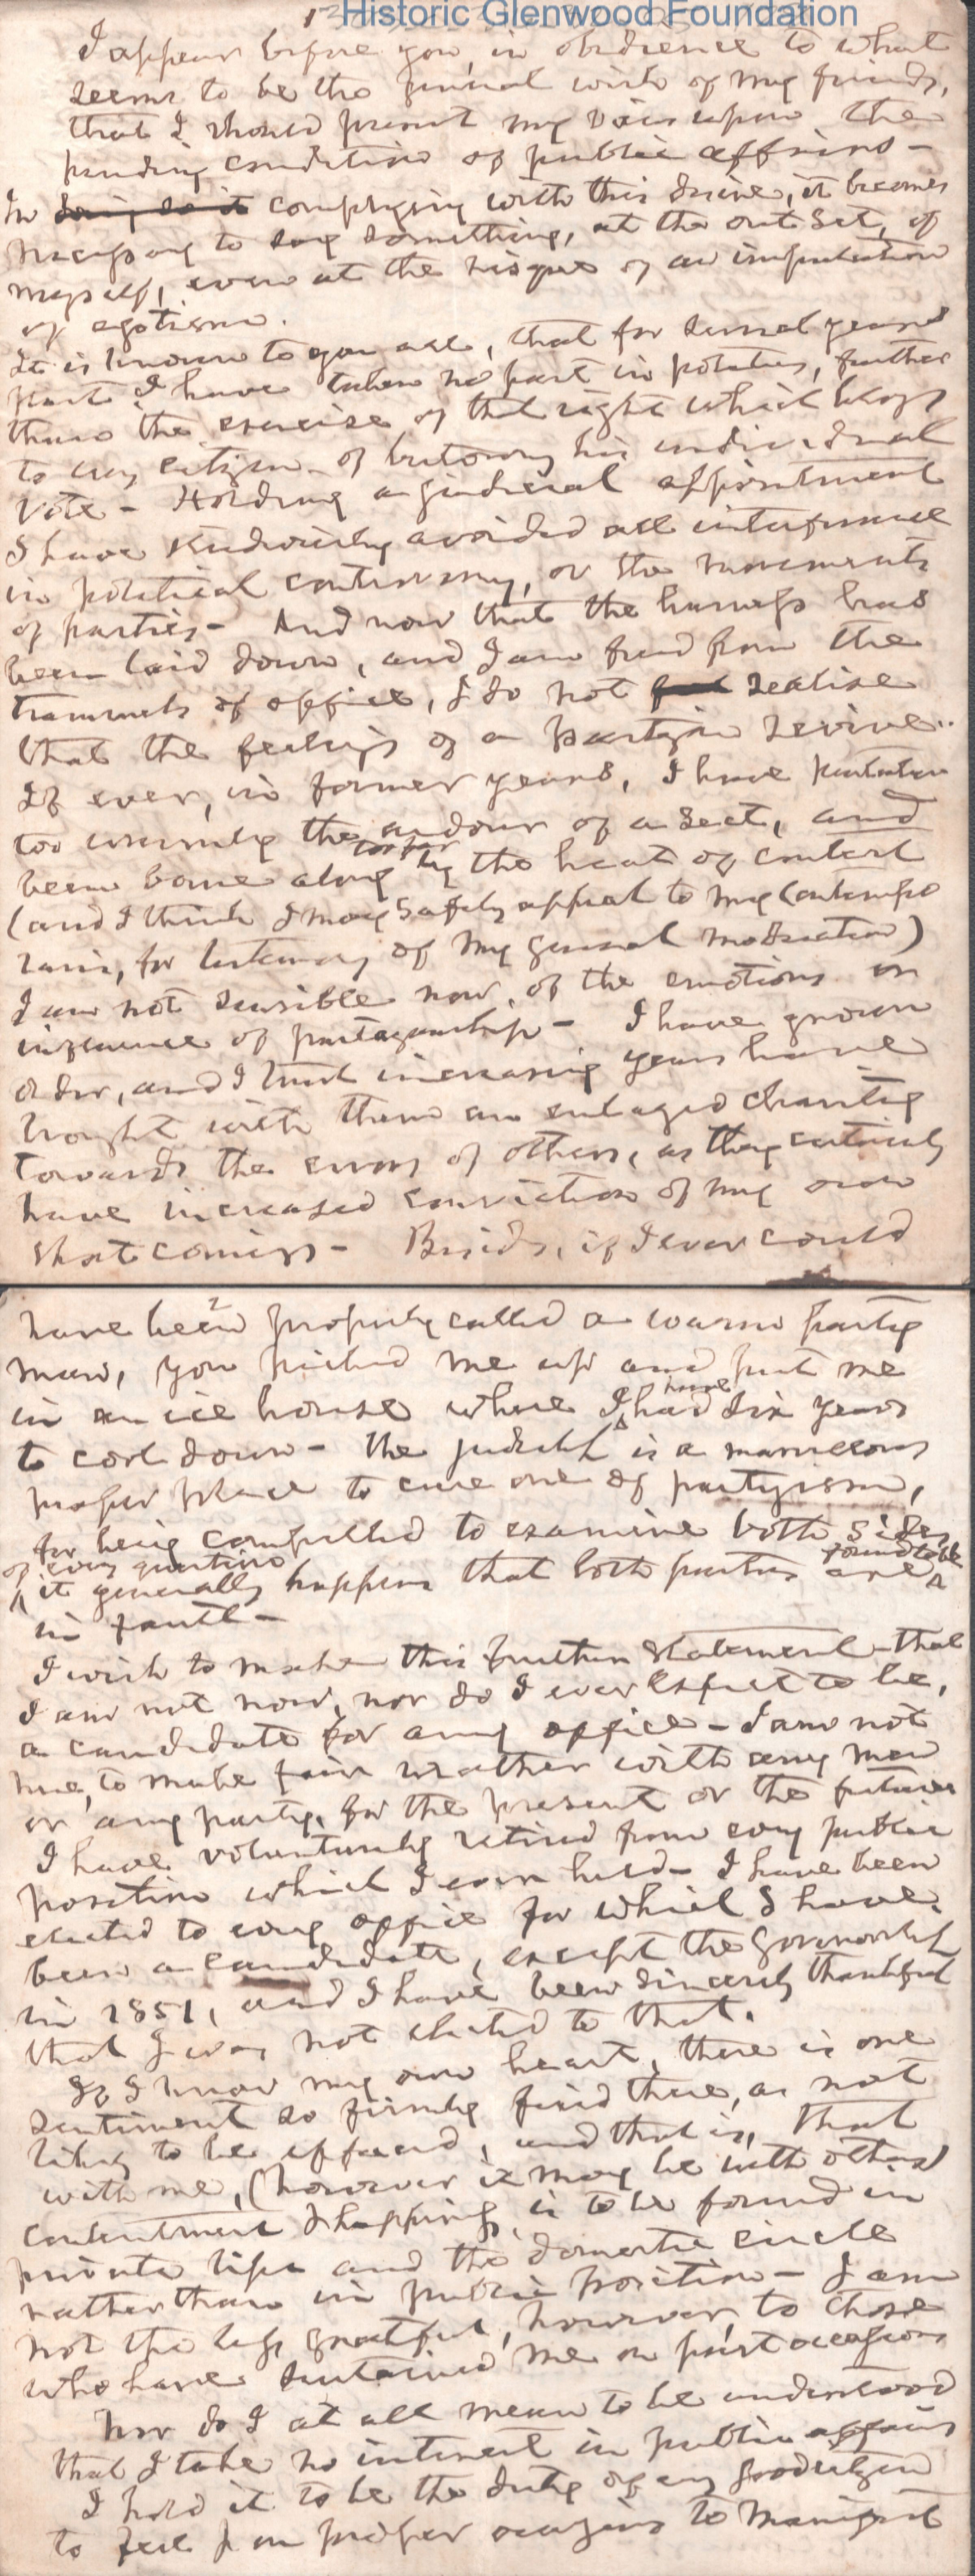 Historic Glenwood Foundation
1
I appear before you, in obedience to what
seems to be the general wish of my friends,
that I should present my views upon the
pending condition of public affairs -
In doing so it complying with this desire, it becomes
necessary to say something, at the outset, of
myself, even at the risque of an imputation
of egotism.
It is known to you all, that for several years
past I have taken no part in politics, further
than the exercise of that right which belongs
to every citizen of bestowing his individual
vote - Holding a judicial appointment
I have studiously avoided all interference
in political controversy, or the movements
of parties - And now that the harness has
been laid down, and I am freed from the
trammels of office, I do not feel realise
that the feelings of a partizan revive.
If ever, in former years, I have partaken
too warmly the ardour of a sect, and
been borne along too far by the heat of contest
(and I think I may safely appeal to my contempo
raries, for testimony of my general moderation)
I am not sensible now, of the emotions or
influence of partizanship - I have grown
older, and I trust increasing years have
brought with them an enlarged charity
towards the errors of others, as they certainly
have increased conviction of my own
short comings - Besides, if I ever could
2
have been properly called a warm party
man, you picked me up and put me
in an ice house where I have had six years
to cool down - the judgeship is a marvellous
proper place to cure one of partyism,
for being compelled to examine both sides
of every question it generally happens that both parties are found to be
in fault -
I wish to make this further statement - that
I am not now, nor do I ever expect to be,
a candidate for any office - I am not
here, to make fair weather with any man
or any party, for the present or the future
I have voluntarily retired from every public
position which I ever held - I have been
elected to every office for which I have
been a candidate, except the Governorship
in 1851, and I have been sincerely thankful
that I was not elected to that.
If I know my own heart, there is one
sentiment so firmly fixed there, as not
likely to be effaced, and that is, that
with me, (however it may be with others)
contentment & happiness is to be found in
private life and the domestic circle
rather than in public position - I am
not the less grateful, however, to those
who have sustained me on past occasions
Nor do I at all mean to be understood
that I take no interest in public affairs
I hold it to be the duty of every good citizen
to feel & on proper occasions to manifest